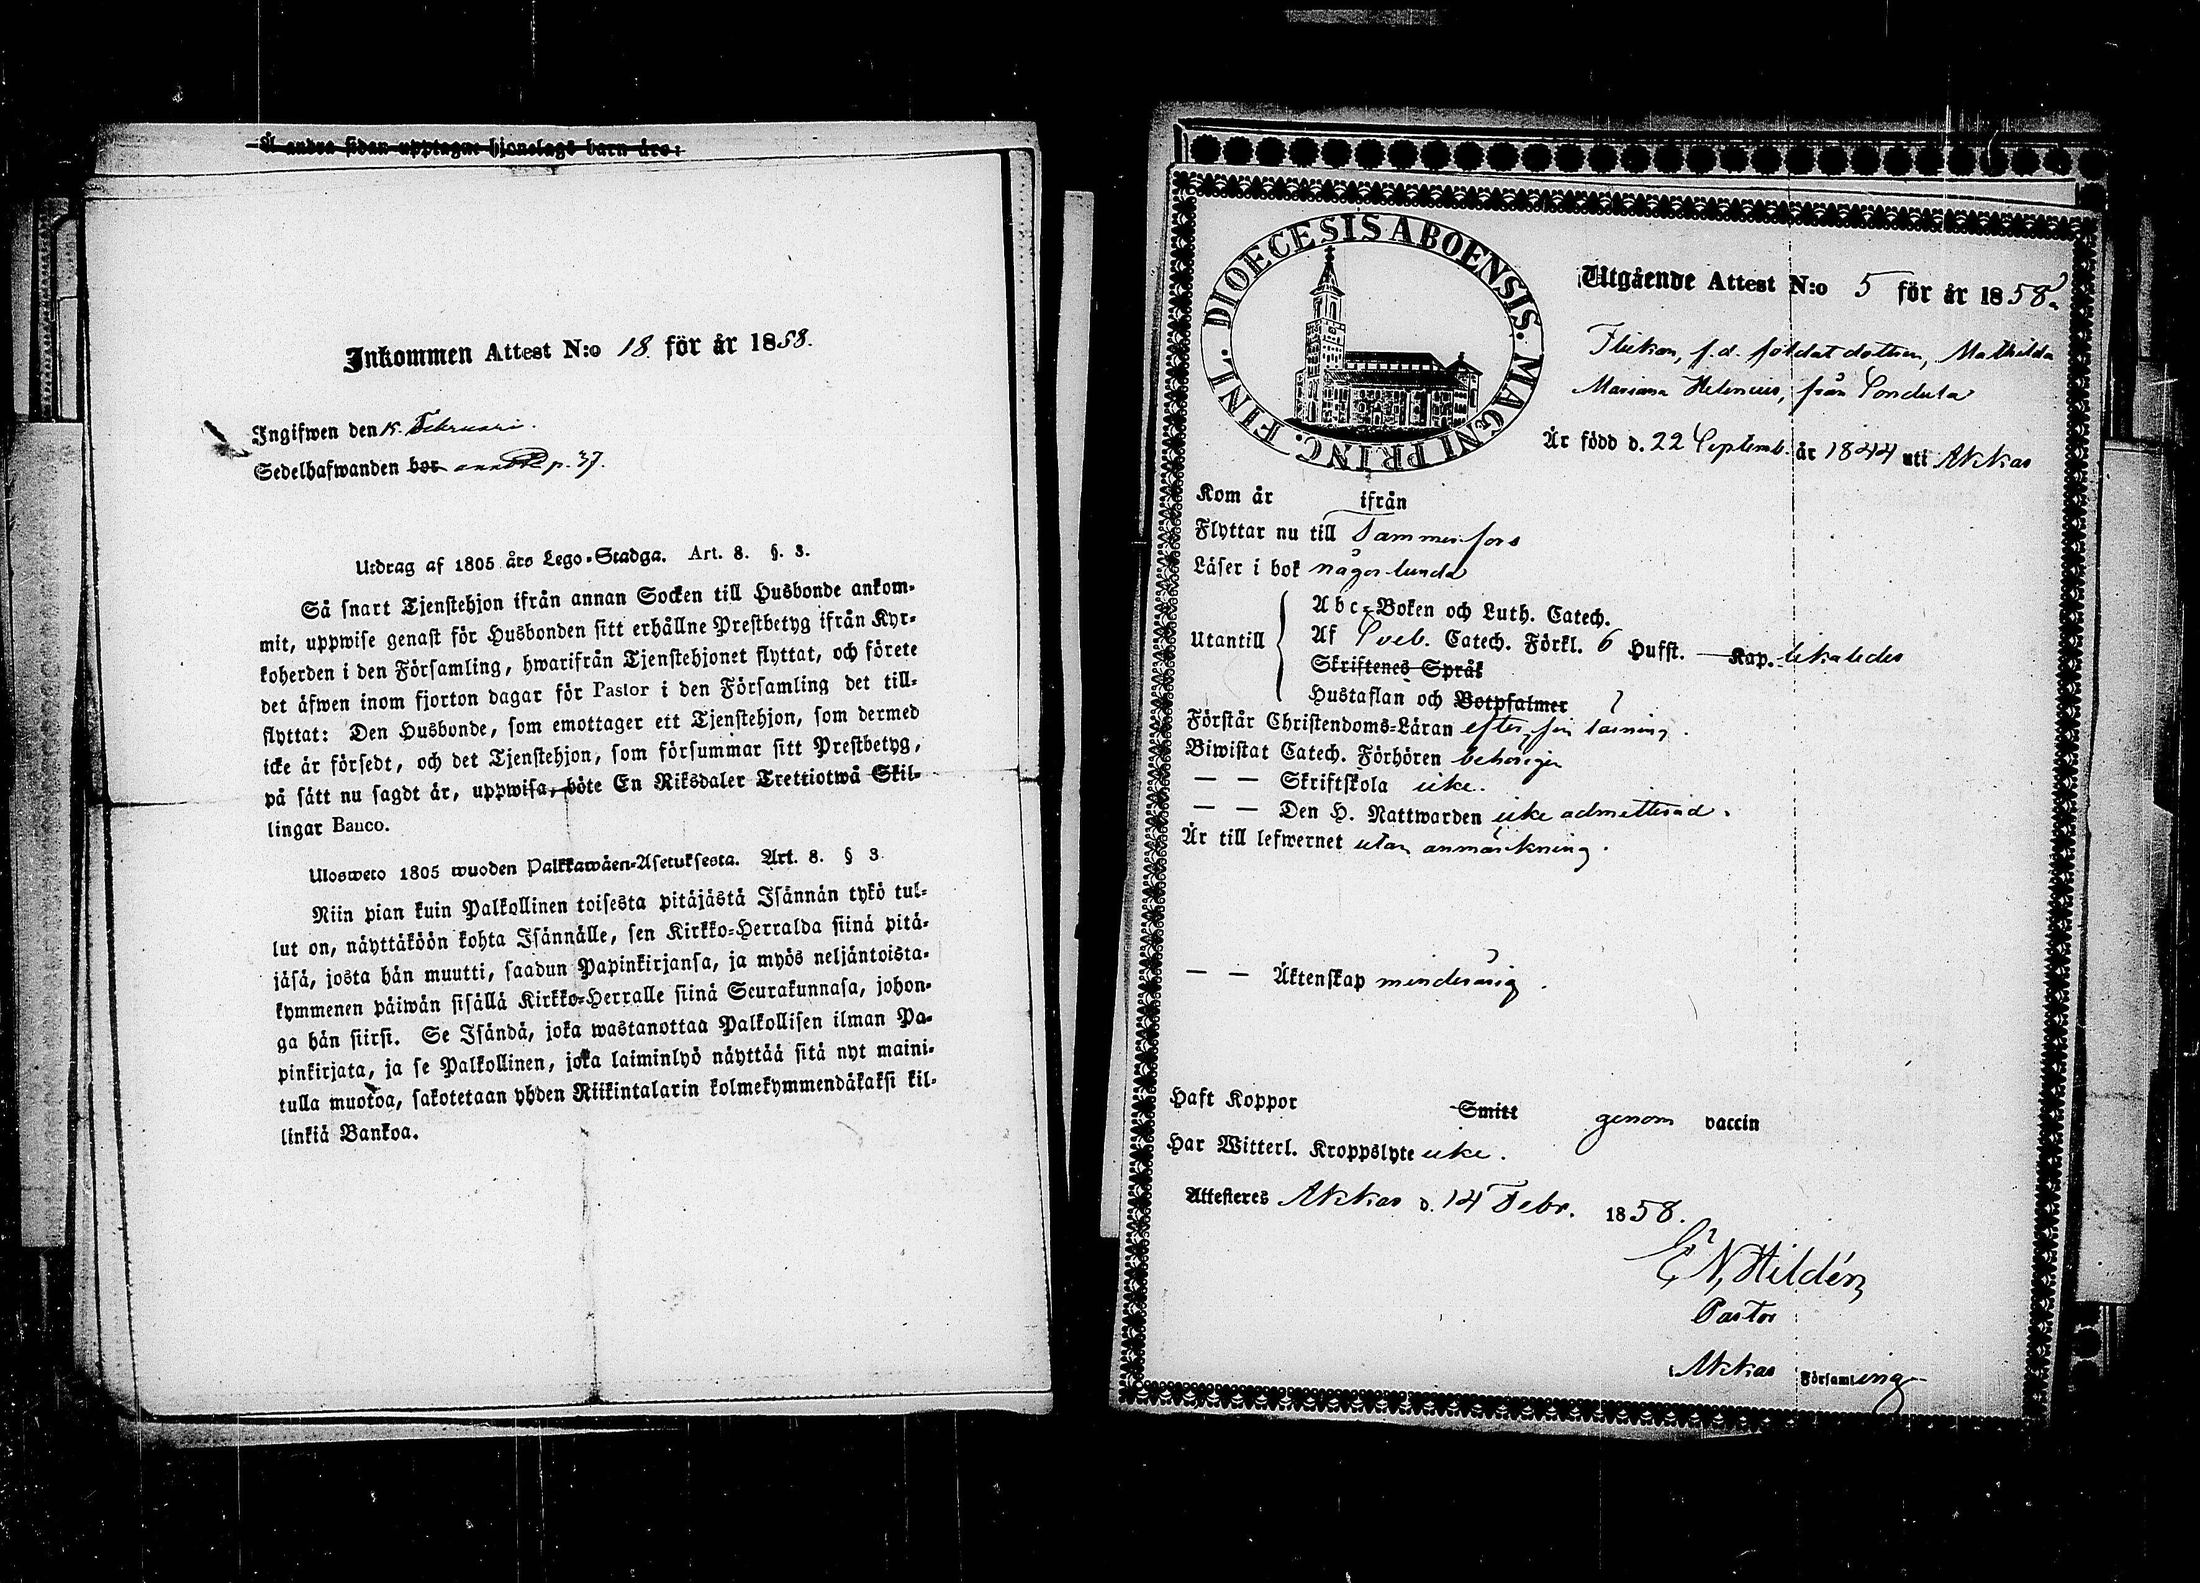 Å andra sidan upptagne hjonelags barn äro:
Inkommen Attest N:o 18. för år 1858.
Ingifwen den 15. Februari.
Sedelhafwanden bor p. 37.
Utdrag af 1805 års Lego-Stadga. Art. 8. §. 3.
Så snart Tjenstehjon ifrån annan Socken till Husbonde ankom-
mit, uppwise genast för Husbonden sitt erhållne Prestbetyg ifrån Kyr-
koherden i den Församling, hwarifrån Tjenstehjonet flyttat, och förete
det äfwen inom fjorton dagar för Pastor i den Församling det till-
flyttat: Den Husbonde, som emottager ett Tjenstehjon, som dermed
icke är försedt, och det Tjenstehjon, som försummar sitt Prestbetyg,
på sätt nu sagdt är, uppwisa, böte En Riksdaler Trettiotwå Skil-
lingar Banco.
Ulosweto 1805 wuoden Palkkawäen-Asetuksesta. Art. 8. § 3.
Niin pian kuin Palkollinen toisesta pitäjästä Isännän tykö tul-
lut on, näyttäköön kohta Isännälle, sen Kirkko-Herralda siinä pitä-
jäsä, josta hän muutti, saadun Papinkirjansa, ja myös neljäntoista-
kymmenen päiwän sisällä Kirkko-Herralle siinä Seurakunnasa, johon-
ga hän siirsi. Se Isändä, joka wastanottaa Palkollisen ilman Pa-
pinkirjata, ja se Palkollinen, joka laiminlyö näyttää sitä nyt maini-
tulla muotoa, sakotetaan yhden Riikintalarin kolmekymmendäkaksi kil-
linkiä Bankoa.
DIOECESIS ABOENSIS. MAGNI PRINC. FINL.
Utgående Attest N:o 5 för år 1858.
Flickan, f.d. soldatdottren, Mathilda
Mariana Helenius, från Sondula
Är född d. 22 Septemb. år 1844 uti Akkas
Kom år ifrån
Flyttar nu till Tammerfors
Läser i bok någorlunda
Utantill
Abc-Boken och Luth. Catech.
Af Sveb. Catech. Förkl. 6 Hufst. — Kap. likaledes
Skriftenes Språk
Hustaflan och Botpsalmer
Förstår Christendoms-Läran efter sin läsning.
Biwistat Catech. Förhören behörigen
— — Skriftskola icke.
— — Den H. Nattwarden icke admitterad.
Är till lefwernet utan anmärkning.
— — Äktenskap minderårig.
Haft Koppor Smitt genom vaccin
Har Witterl. Kroppslyte icke.
Attesteres Akkas d. 14 Febr. 1858.
E N, Hildén
Pastor
Akkas Församling